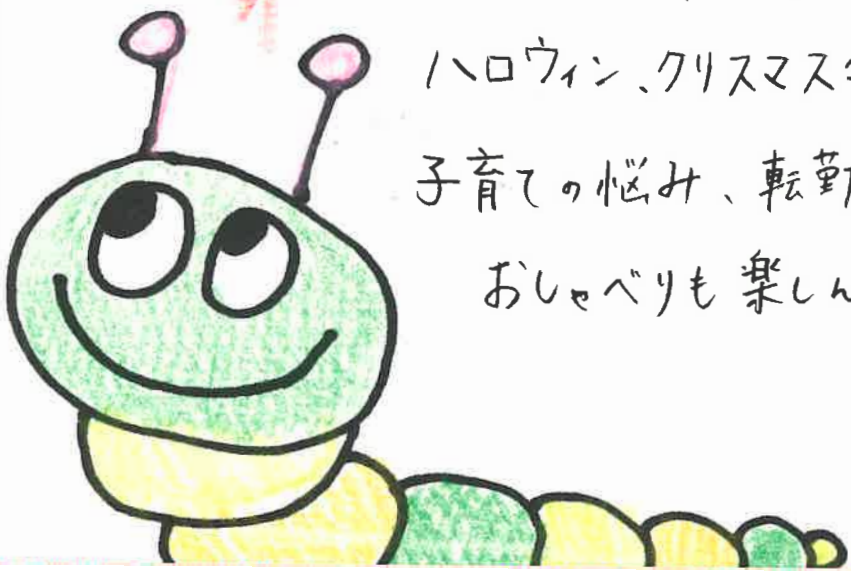 ハロウィン、クリスマス
子育ての悩み、転勤
おしゃべりも楽しん